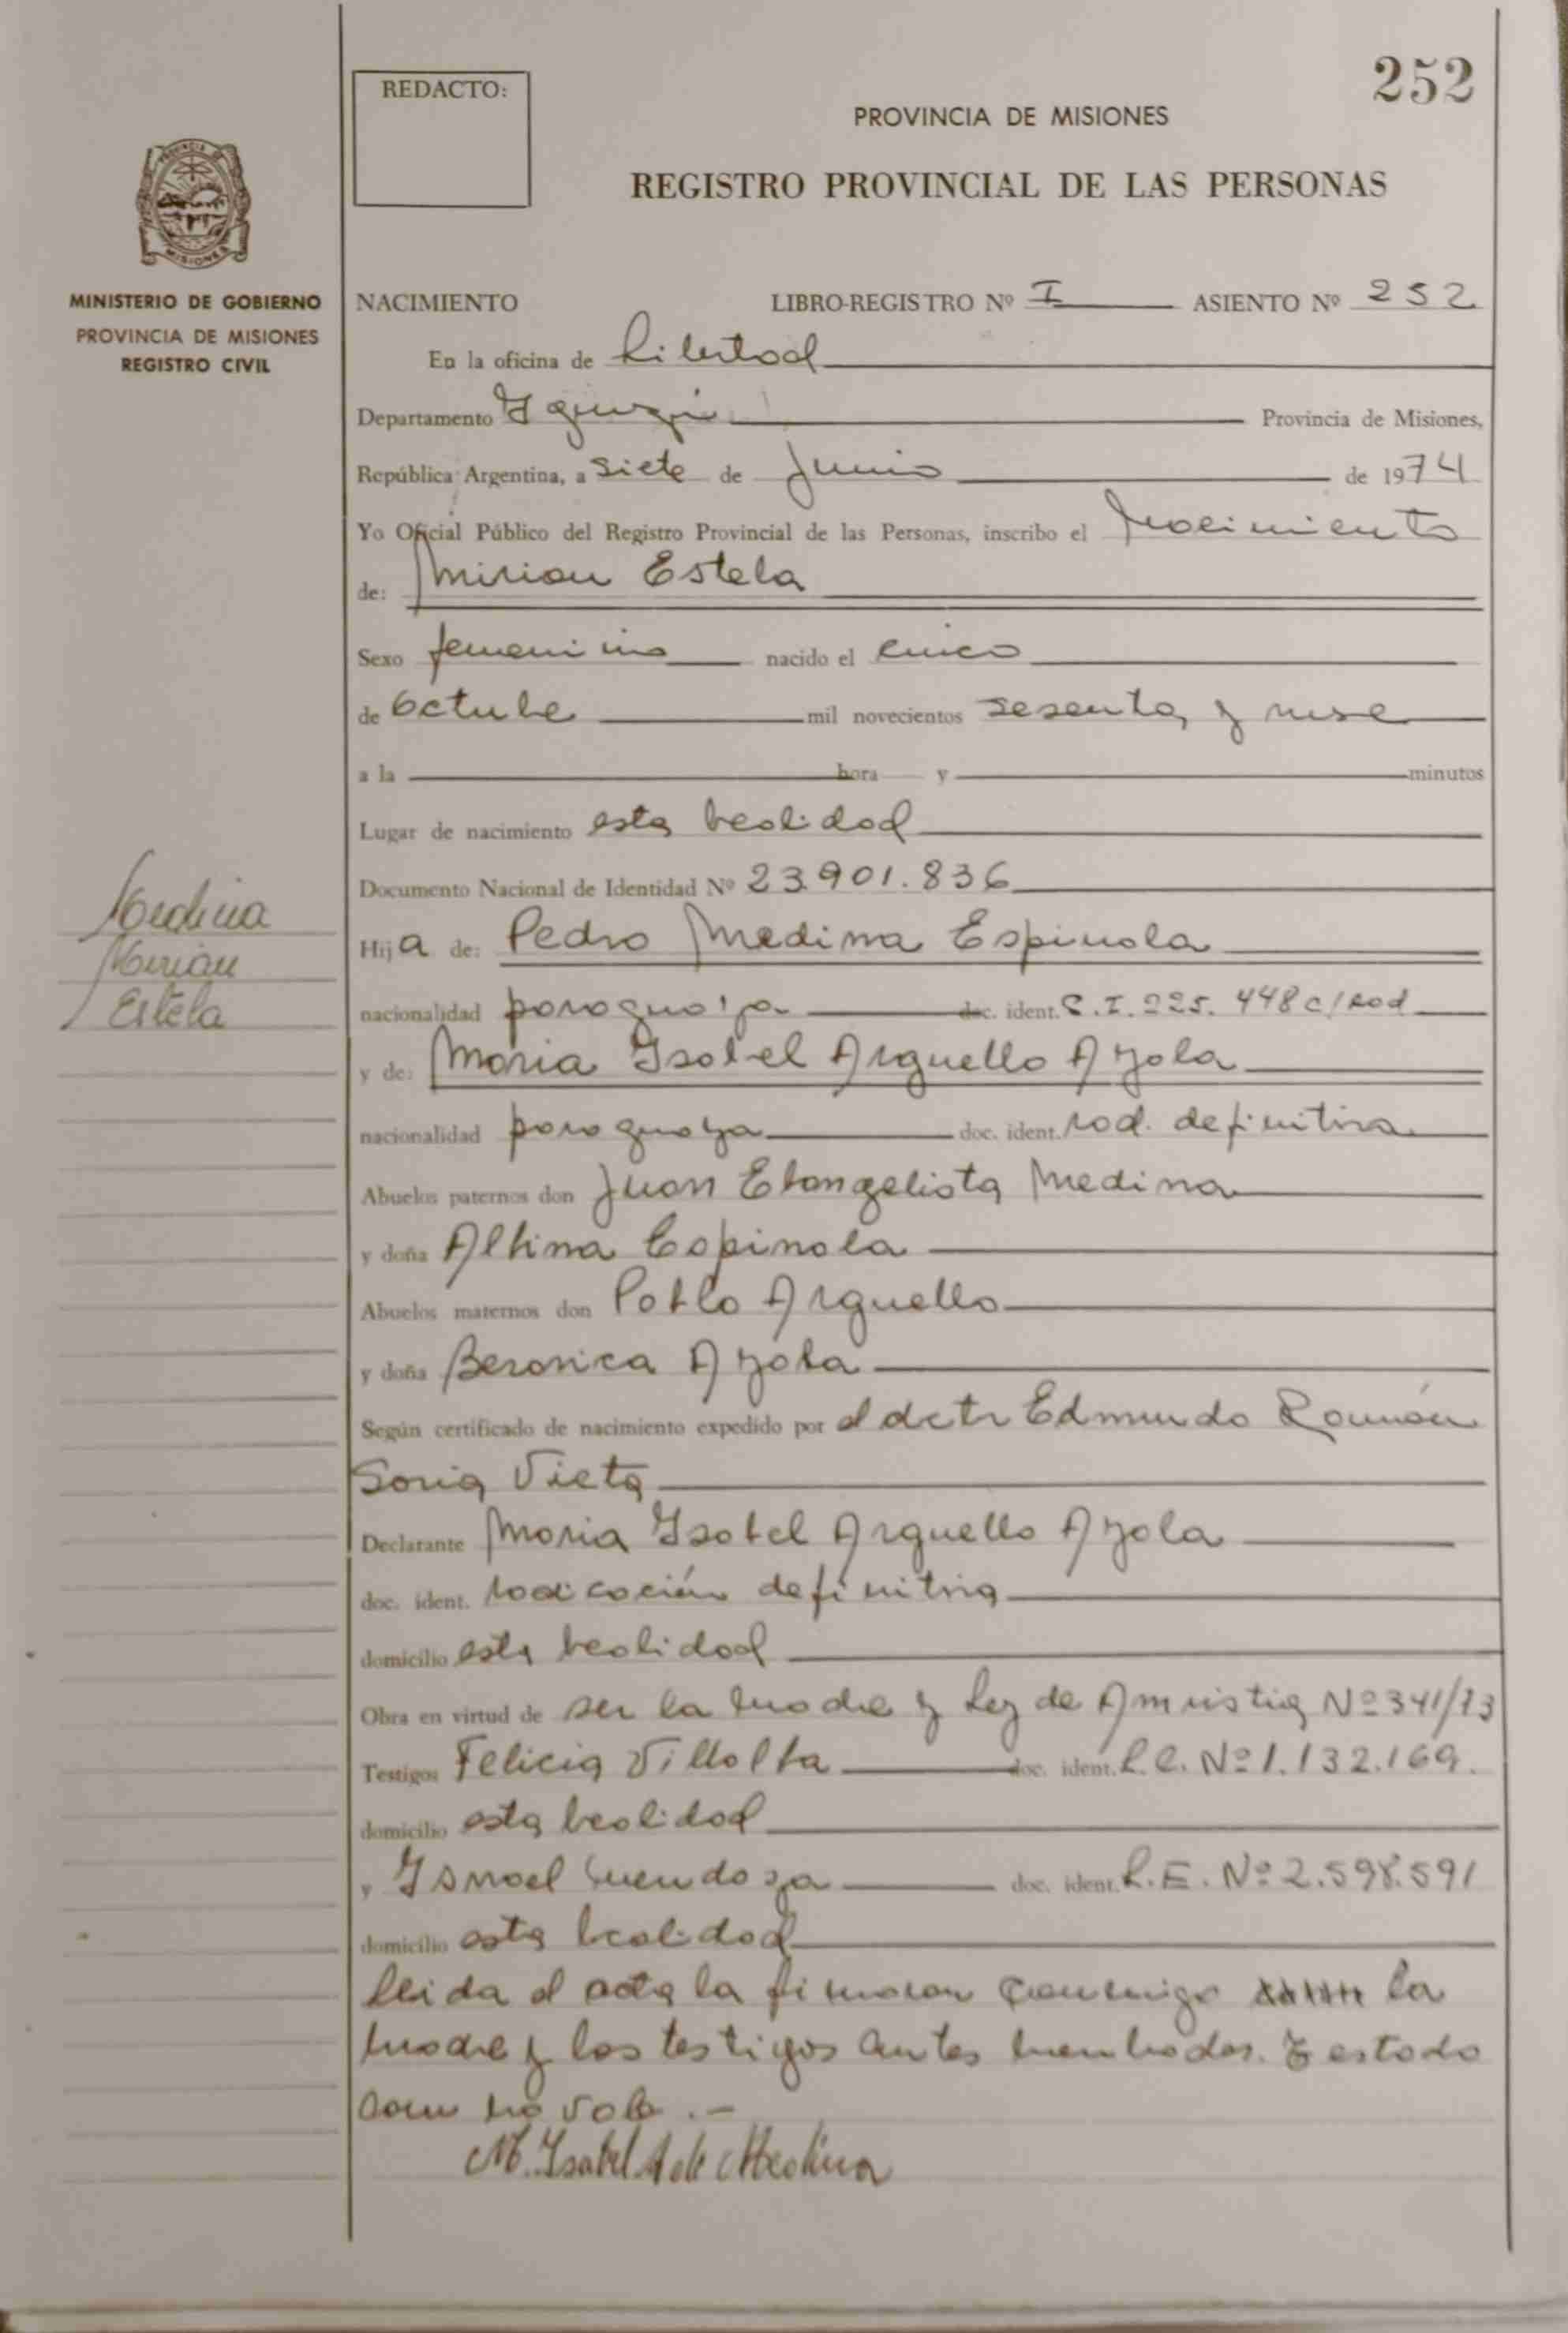 252
REDACTO:
PROVINCIA DE MISIONES
REGISTRO PROVINCIAL DE LAS PERSONAS
PROVINCIA DE
MISIONES
MINISTERIO DE GOBIERNO
PROVINCIA DE MISIONES
REGISTRO CIVIL
NACIMIENTO LIBRO-REGISTRO Nº I ASIENTO Nº 252
En la oficina de Libertad
Departamento Iguazú Provincia de Misiones,
República Argentina, a siete de Junio de 1974
Yo Oficial Público del Registro Provincial de las Personas, inscribo el Nacimiento
de: Mirian Estela
Sexo femenino nacido el cinco
de octubre mil novecientos sesenta y
a la hora y minutos
Lugar de nacimiento esta localidad
Documento Nacional de Identidad Nº 23.901.836
Medina
Mirian
Estela
Hija de: Pedro Medina Espinola
nacionalidad paraguaya doc. ident. C.I. 225.448 c/rad
y de: Maria Ysabel Arguello Ayala
nacionalidad paraguaya doc. ident. rad. definitiva
Abuelos paternos don Juan Ebangelista Medina
y doña Albina Espinola
Abuelos maternos don Pablo Arguello
y doña Beronica Ayala
Según certificado de nacimiento expedido por el dctr Edmundo Román
Soria Vieta
Declarante Maria Ysabel Arguello Ayala
doc. ident. radicación definitiva
domicilio esta localidad
Obra en virtud de ser la madre y Ley de Amnistia Nº 341/73
Testigos Felicia Villalba doc. ident. L.C. Nº 1.132.169.
domicilio esta localidad
y Ismael Mendoza doc. ident. L.E. Nº 2.598.591
domicilio esta localidad
Leida el acta la firmaron conmigo la
madre y los testigos antes nombrados. testado
no vale.-
M. Isabel A de Medina